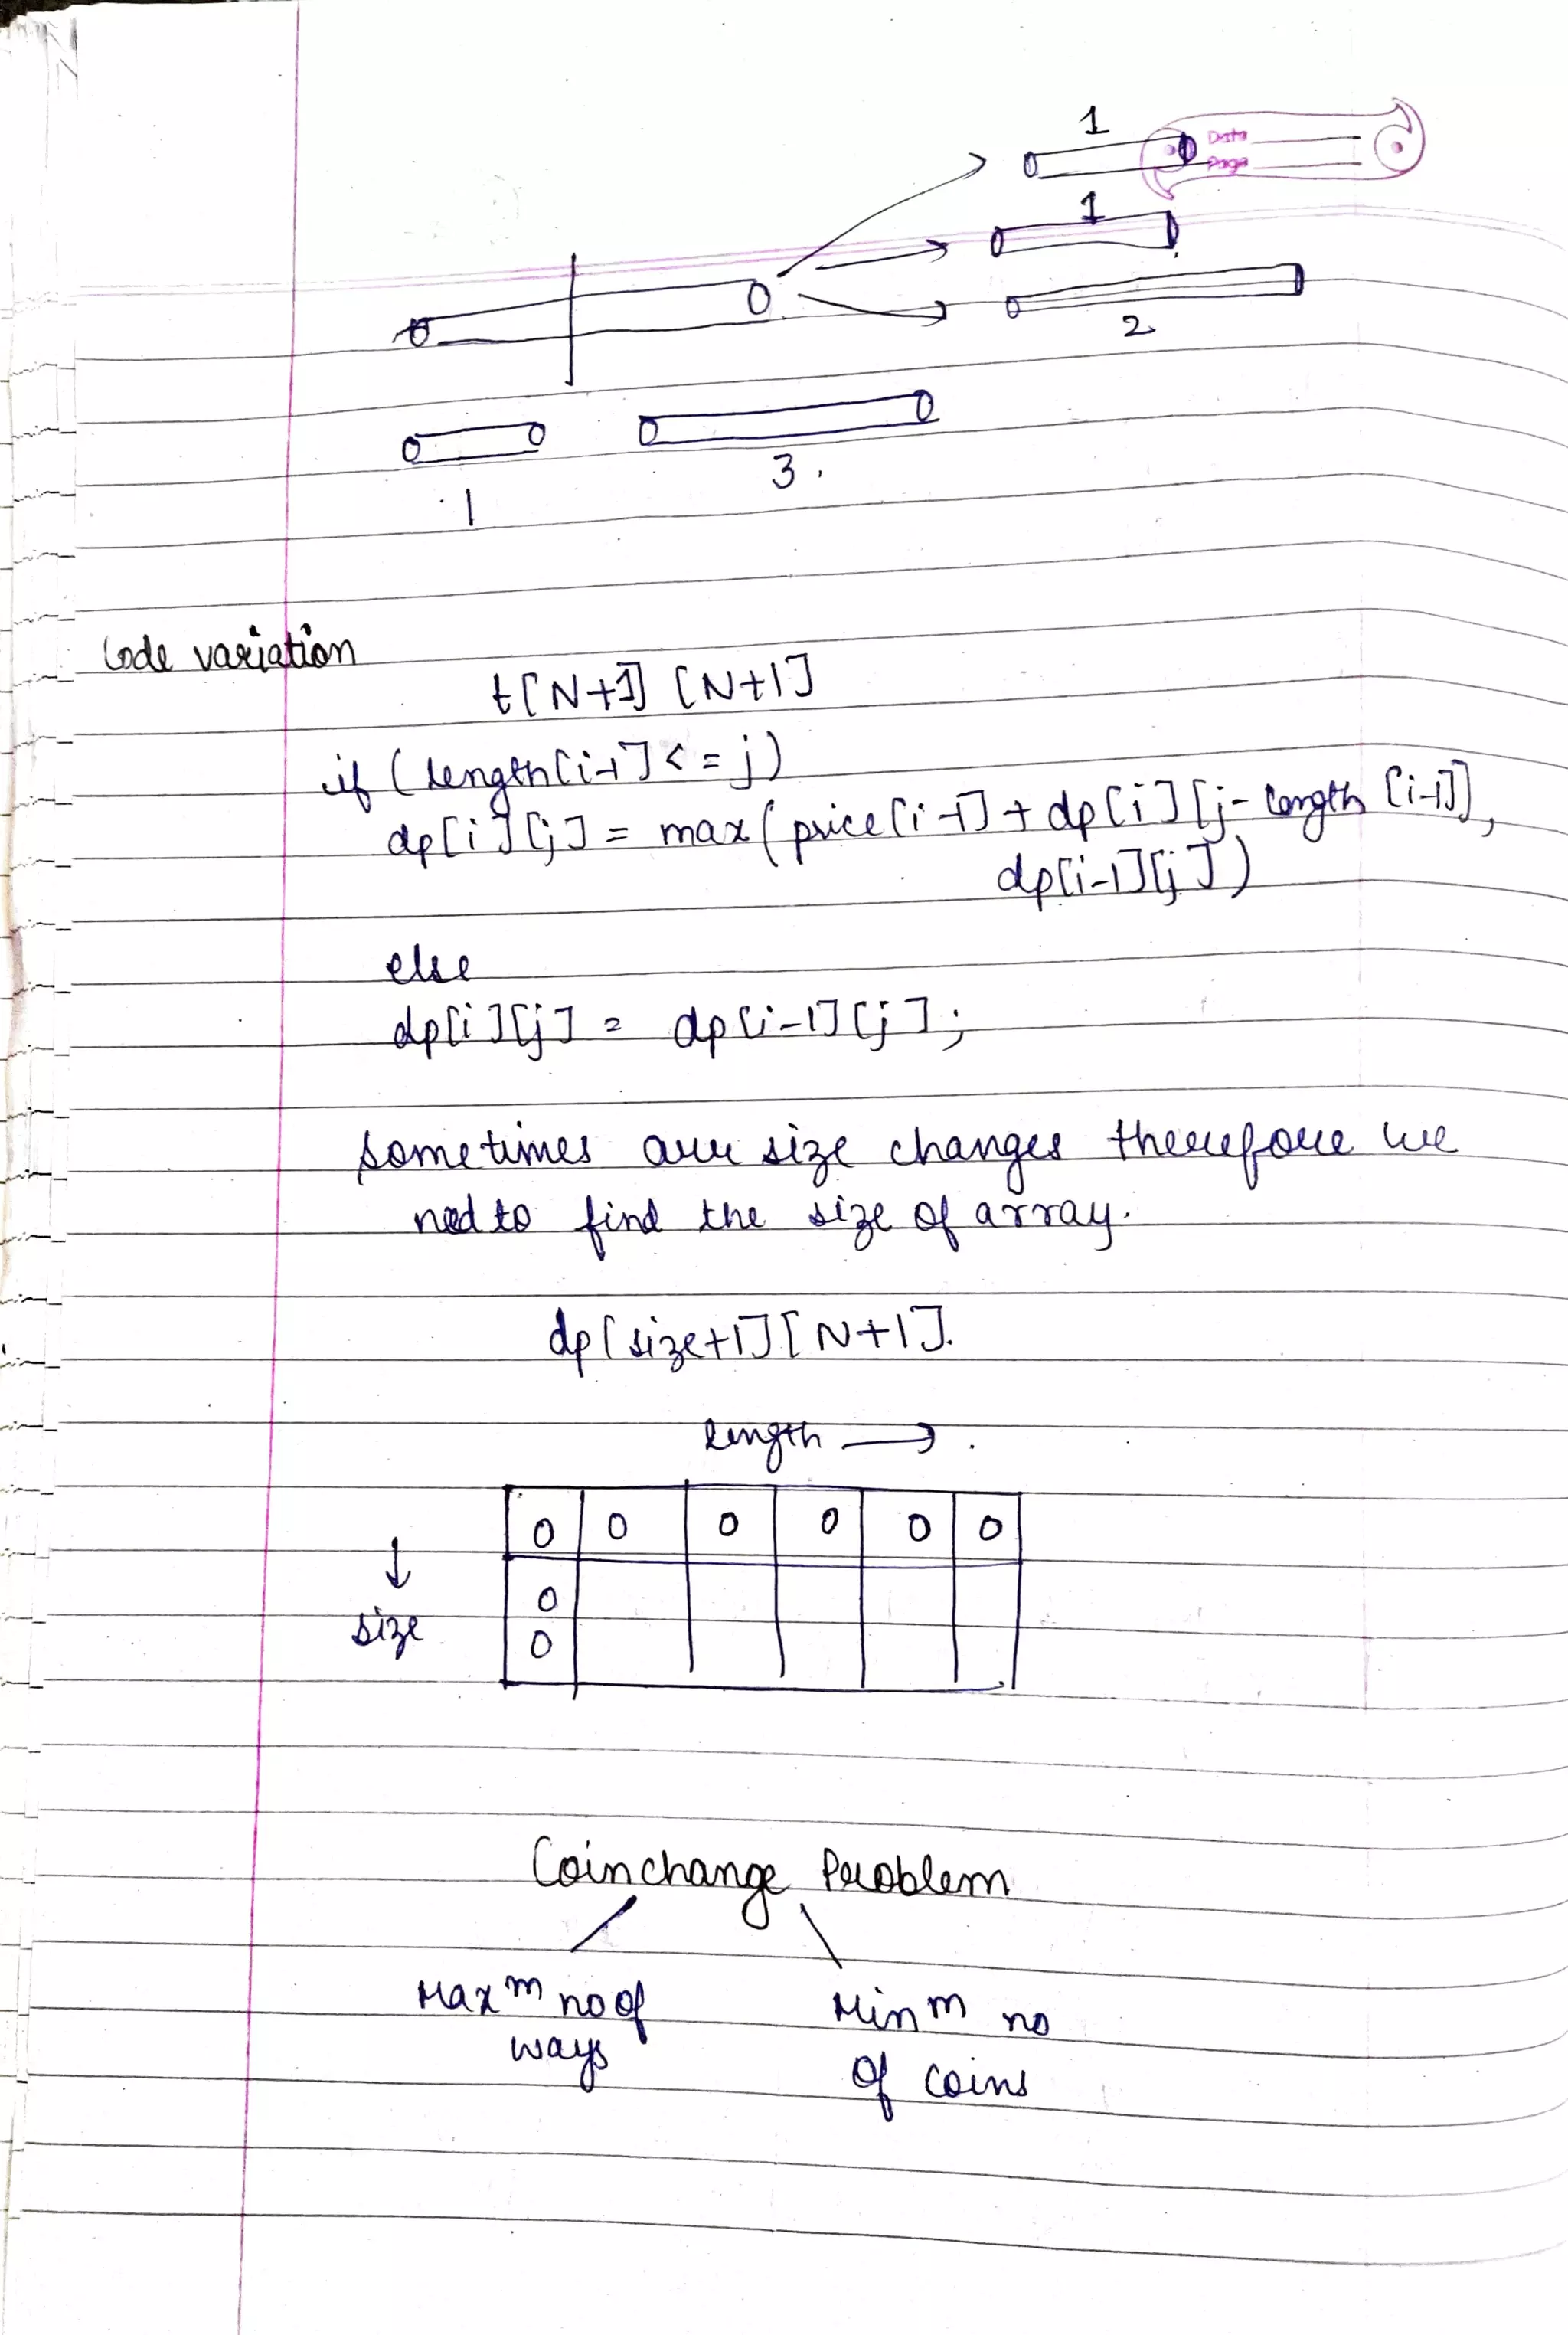 1
Date
Page
1
2
1
3.
Code variation
t[N+1] [N+1]
if (length[i-1] <= j)
dp[i][j] = max(price[i-1] + dp[i][j-length [i-1]],
dp[i-1][j])
else
dp[i][j] = dp[i-1][j];
sometimes arr size changes therefore we
need to find the size of array.
dp[size+1][N+1].
length →
0 0 0 0 0 0
↓
0
size
0
Coinchange Problem
Maxm no of
ways
Minm no
of coins